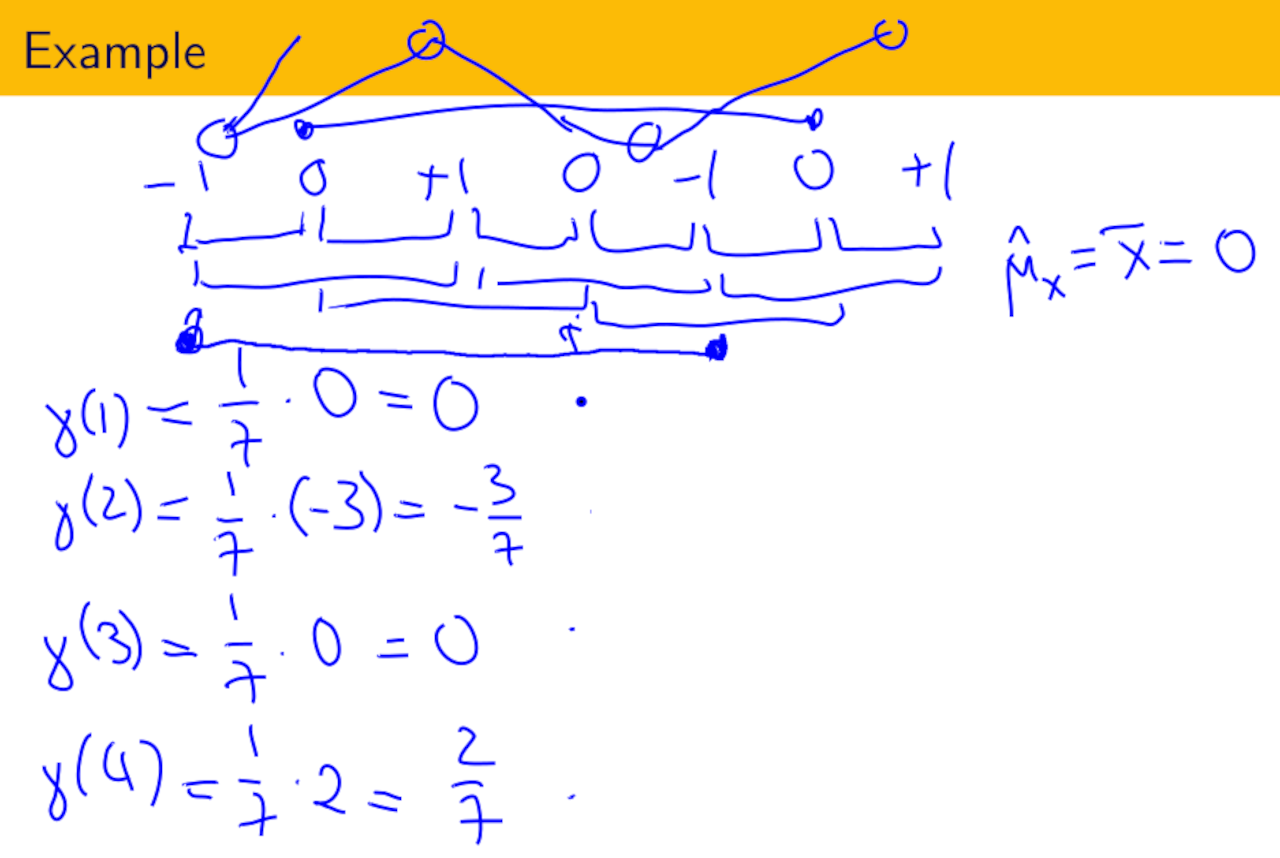 Example
-1 0 +1 0 -1 0 +1
μ̂ₓ = x̄ = 0
γ(1) = 1/7 · 0 = 0
γ(2) = 1/7 · (-3) = - 3/7
γ(3) = 1/7 · 0 = 0
γ(4) = 1/7 · 2 = 2/7